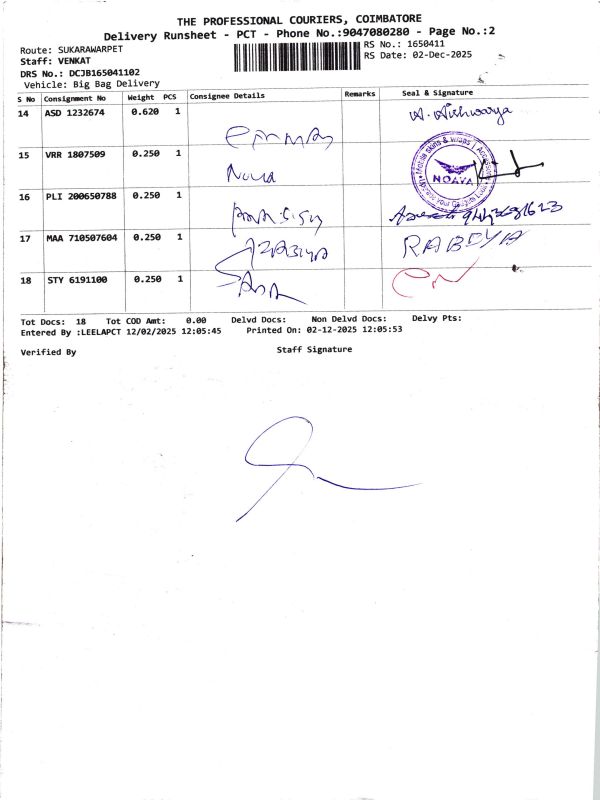 THE PROFESSIONAL COURIERS, COIMBATORE
Delivery Runsheet - PCT - Phone No.:9047080280 - Page No.:2
Route: SUKARAWARPET
RS No.: 1650411
Staff: VENKAT
RS Date: 02-Dec-2025
DRS No.: DCJB165041102
Vehicle: Big Bag Delivery
S No Consignment No Weight PCS Consignee Details Remarks Seal & Signature
14 ASD 1232674 0.620 1 A. Aishwarya
15 VRR 1807509 0.250 1 Nova
NOAYA
16 PLI 200650788 0.250 1
17 MAA 710507604 0.250 1 RABIYA
18 STY 6191100 0.250 1
Tot Docs: 18 Tot COD Amt: 0.00 Delvd Docs: Non Delvd Docs: Delvy Pts:
Entered By :LEELAPCT 12/02/2025 12:05:45 Printed On: 02-12-2025 12:05:53
Verified By Staff Signature